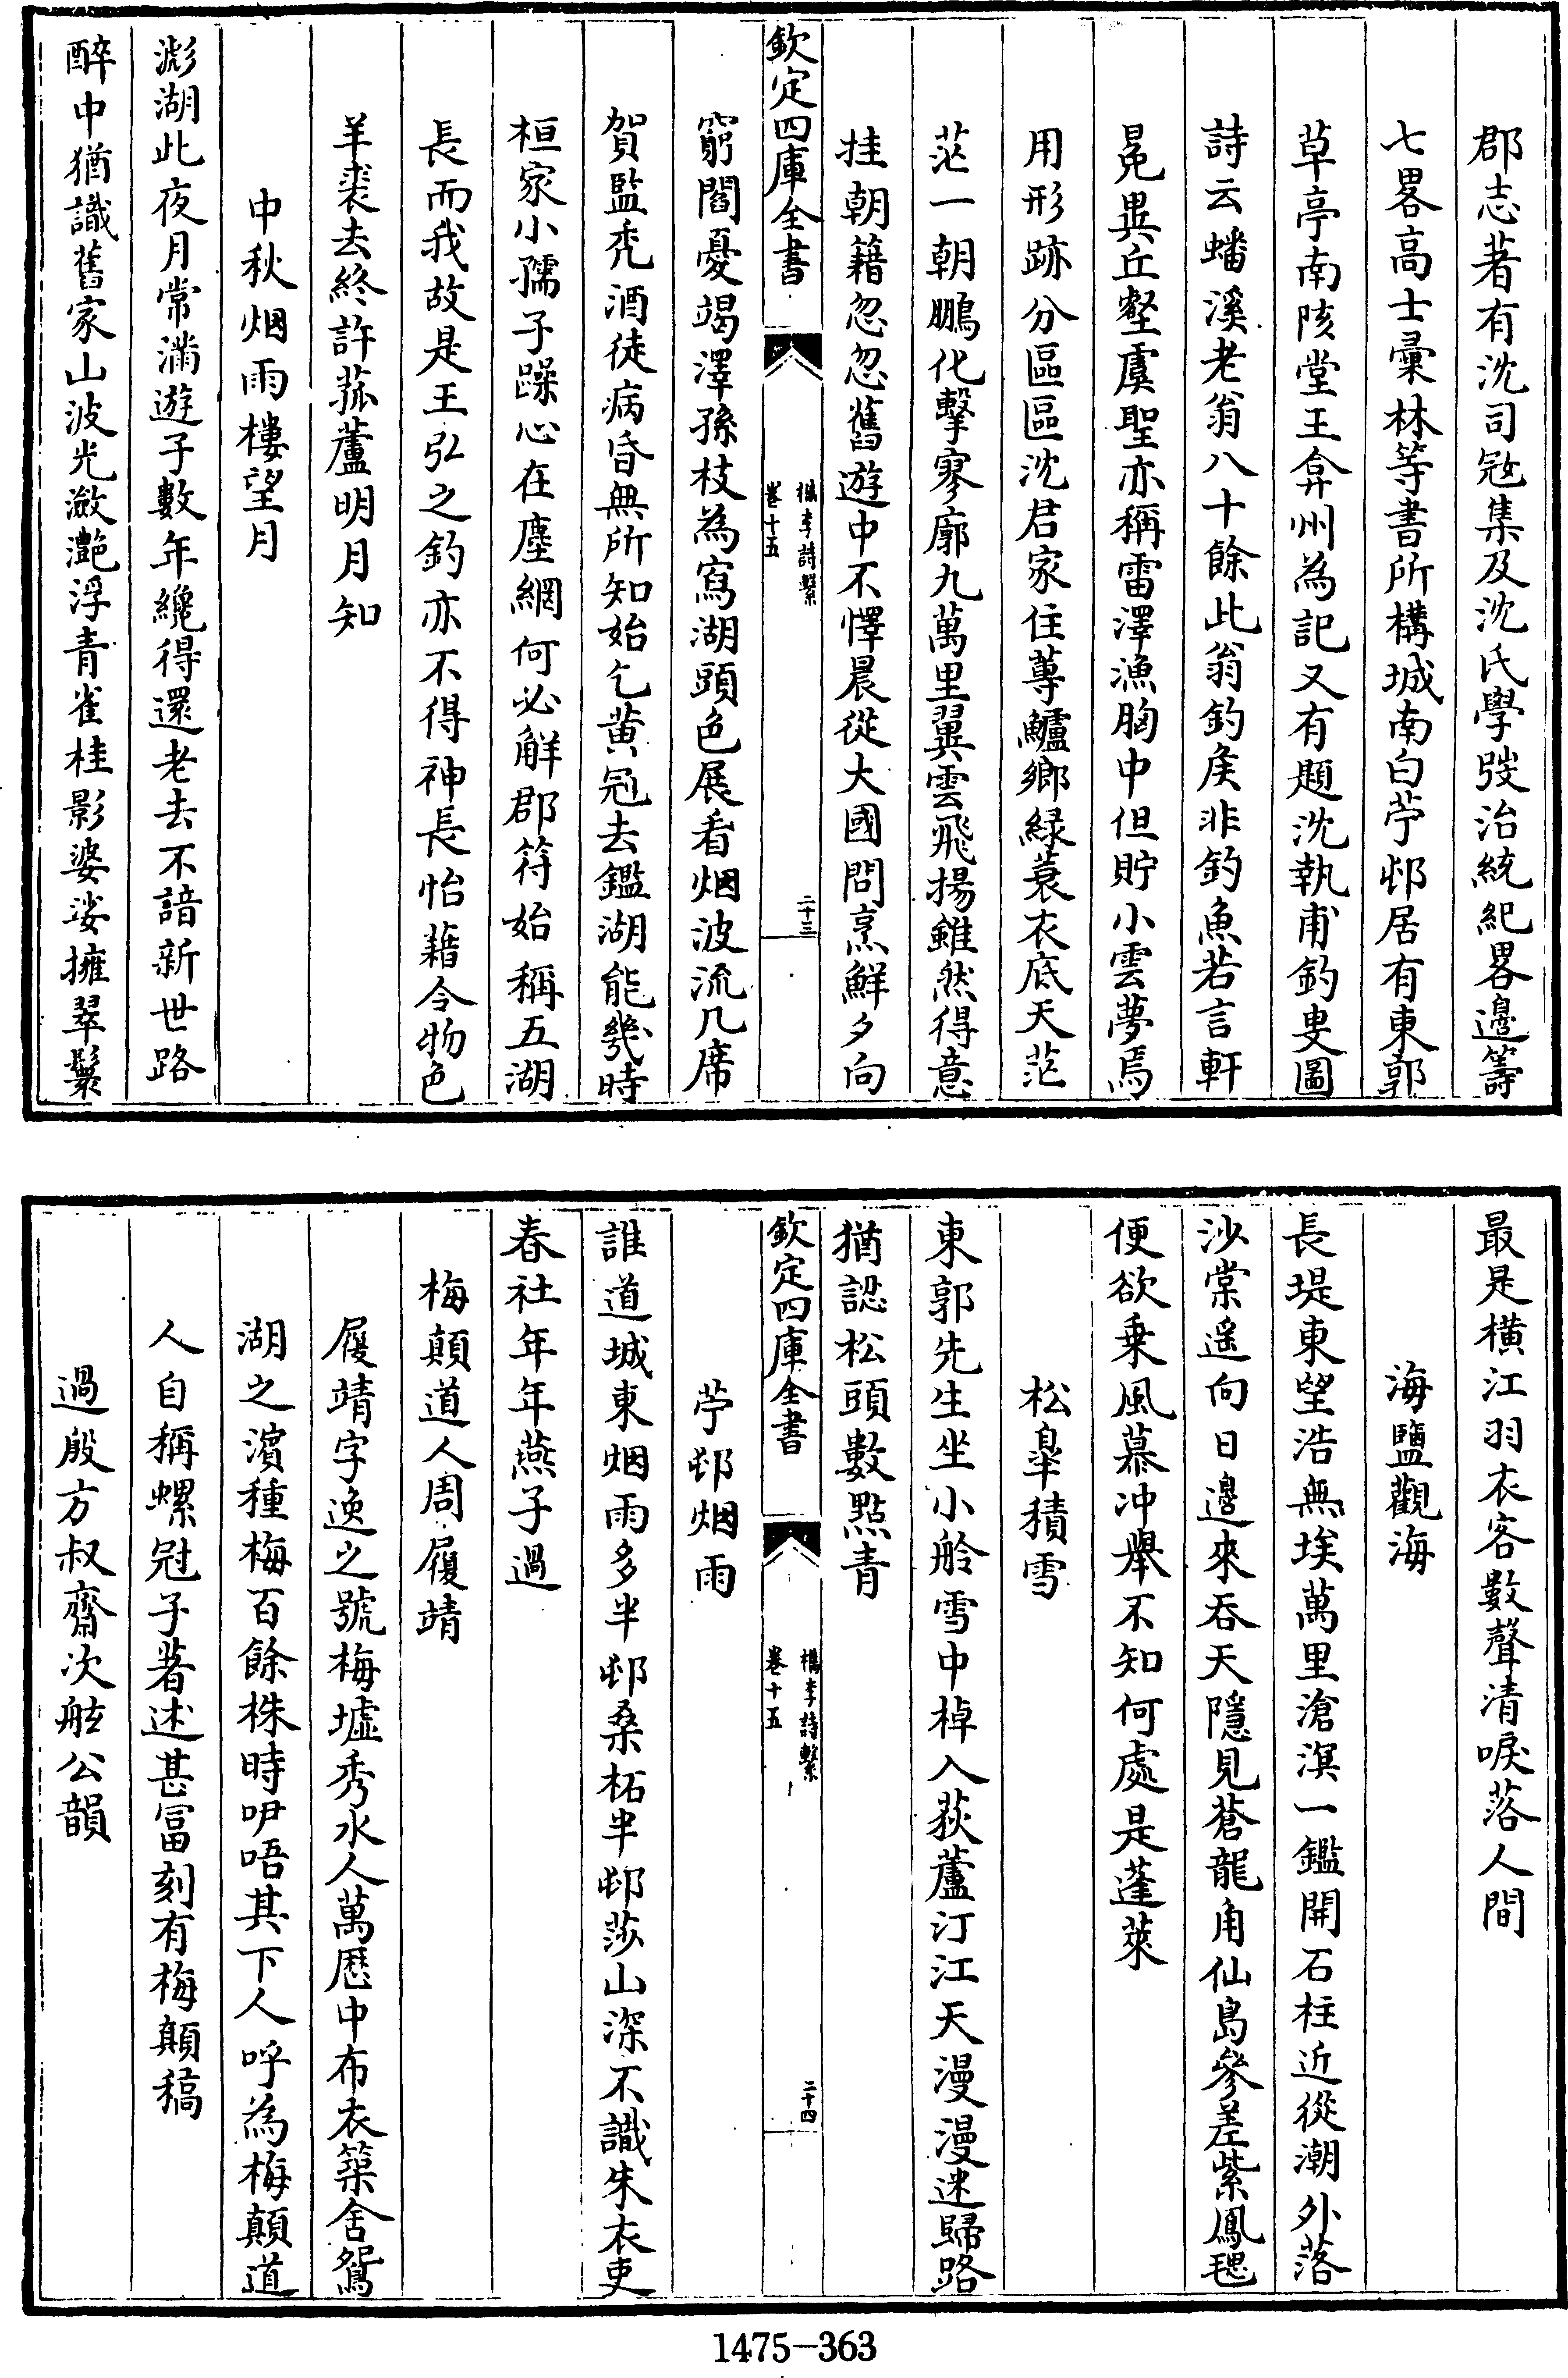 郡志著有沈司㓂集及沈氏學弢治統紀畧邉籌
七畧高士彚林等書所構城南白苧邨居有東郭
草亭南陔堂王弇州為記又有題沈執甫釣叟圖
詩云蟠溪老翁八十餘此翁釣矦非釣魚若言軒
冕異丘壑虞聖亦稱雷澤漁胸中但貯小雲夢焉
用形跡分區區沈君家住蓴鱸鄉緑蓑衣底天茫
茫一朝鵬化擊寥廓九萬里翼雲飛揚雖然得意
挂朝籍忽忽舊遊中不懌晨從大國問烹鮮夕向
欽定四庫全書
檇李詩繫
卷十五
二十三
窮閻憂竭澤孫枝為寫湖頭色展看烟波流几席
賀監禿酒徒病昏無所知始乞黄冠去鑑湖能幾時
桓家小孺子躁心在塵網何必解郡符始稱五湖
長而我故是王弘之釣亦不得神長怡藉令物色
羊裘去終許菰蘆明月知
中秋烟雨樓望月
澎湖此夜月常滿遊子數年纔得還老去不諳新世路
醉中猶識舊家山波光瀲灧浮青雀桂影婆娑擁翠鬟
最是横江羽衣客數聲清唳落人間
海鹽觀海
長堤東望浩無埃萬里滄溟一鑑開石柱近從潮外落
沙棠遥向日邉來吞天隱見蒼龍角仙島參差紫鳳毸
便欲乘風慕冲舉不知何處是蓬萊
松臯積雪
東郭先生坐小舲雪中棹入荻蘆汀江天漫漫迷歸路
猶認松頭數點青
欽定四庫全書
檇李詩繫
卷十五
二十四
苧邨烟雨
誰道城東烟雨多半邨桑柘半邨莎山深不識朱衣吏
春社年年燕子過
梅顛道人周履靖
履靖字逸之號梅墟秀水人萬厯中布衣築舍鴛
湖之濵種梅百餘株時吚唔其下人呼為梅顛道
人自稱螺冠子著述甚富刻有梅顛稿
過殷方叔齋次舷公韻
1475-363